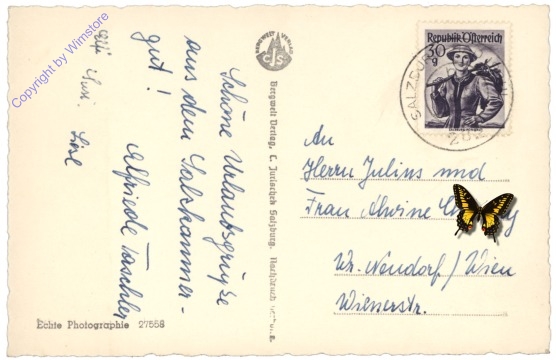 Copyright by Wimstore
Schöne Urlaubsgrüße
aus dem Salzkammer-
gut!
Elfriede
Lisl
Echte Photographie 27558
BERGWELT VERLAG
CJS
Bergwelt Verlag, C. Jurischek Salzburg. Nachdruck verboten.
Republik Österreich
30
g
SALZBURG
An
Herrn Julius und
Frau Alwine
Wr. Neudorf / Wien
Wienerstr.